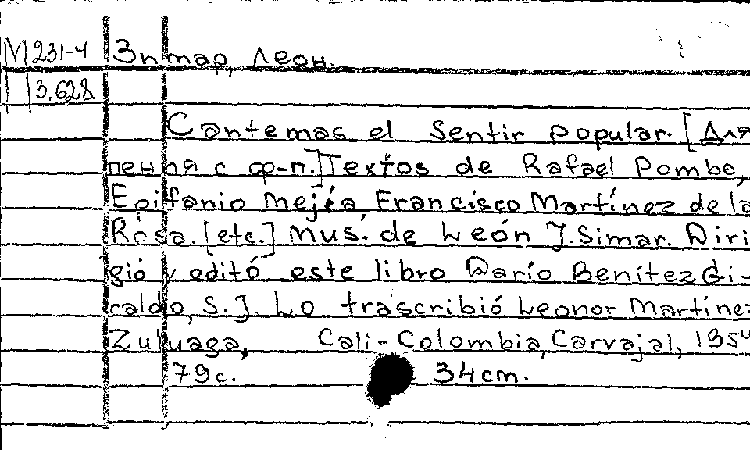 М 231-4 Зитар, Леон.
3.628
Cantemos el sentir popular. [Для
пения с ф-п.] Textos de Rafael Pombo,
Epifanio Mejía, Francisco Martínez de la
Rosa. [etc.] Mus. de León J. Simar. Diri
gió y editó este libro Darío Benítez Gi-
raldo, S.J. Lo trascribió Leonor Martínez
Zuluaga, Cali-Colombia, Carvajal,
79c. 34cm.